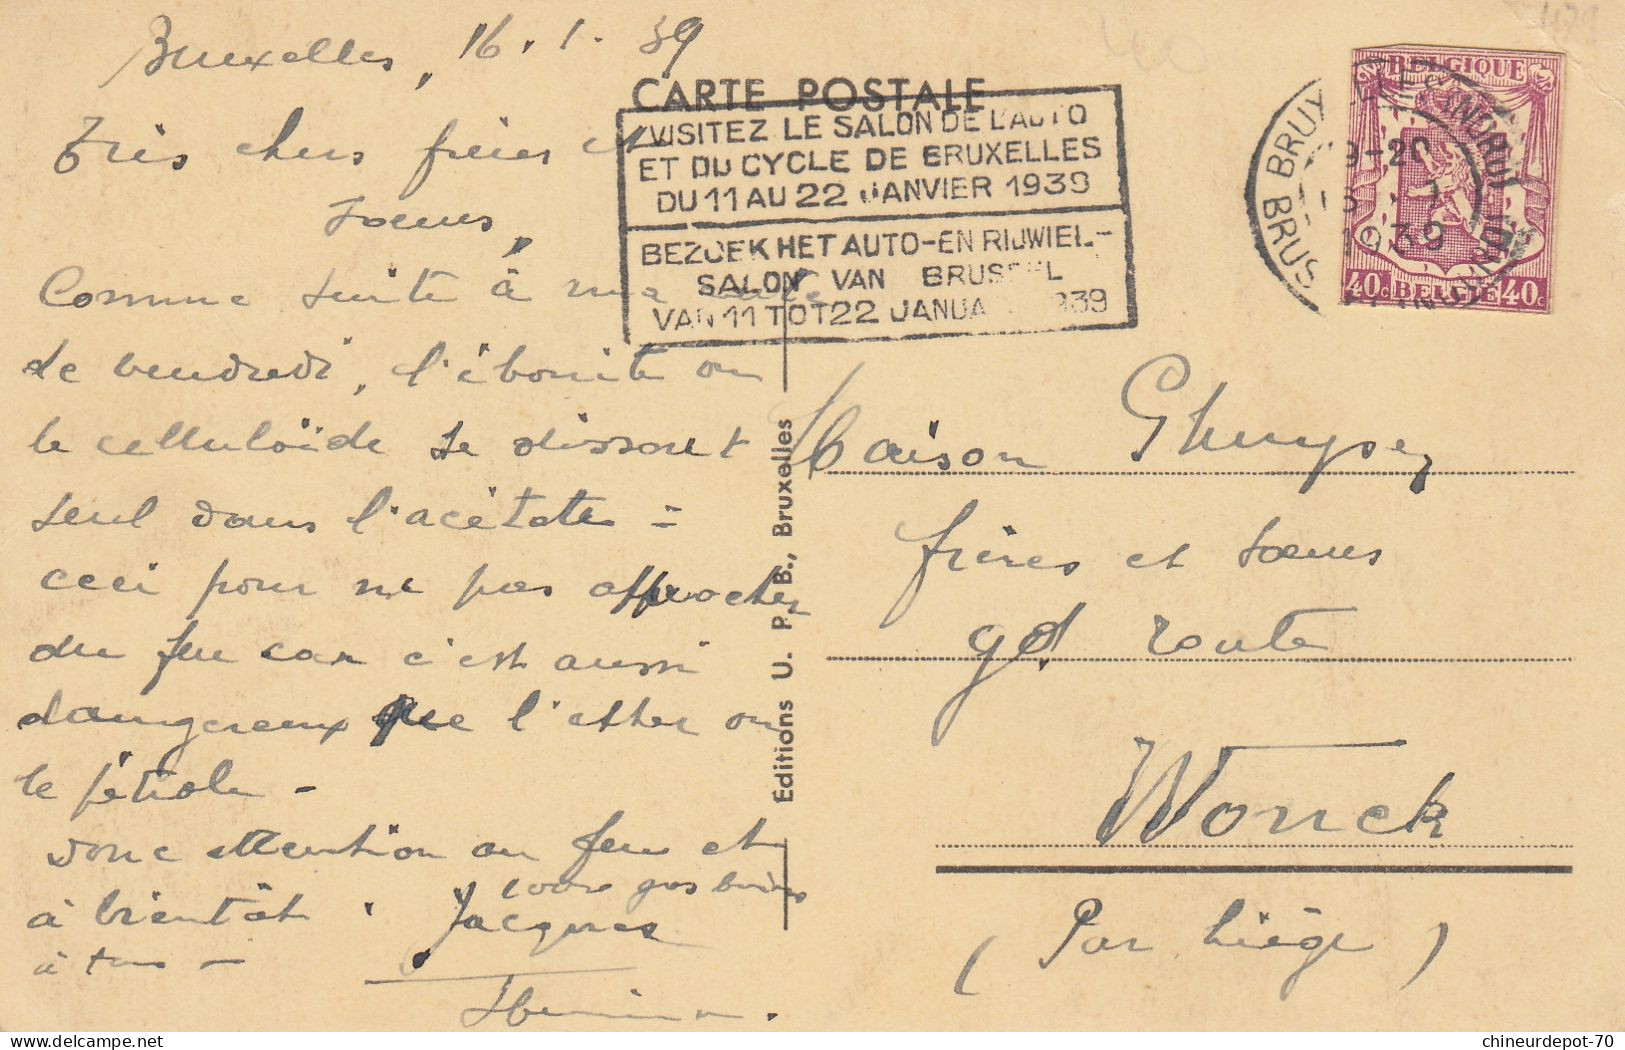 Bruxelles, 16.1.39
Très chers frères et
soeurs,
Comme suite à ma carte
de vendredi, l'ébonite ou
le celluloïde se dissout
seul dans l'acétate =
ceci pour ne pas approcher
du feu car c'est aussi
dangereux que l'ether ou
le pétrole -
donc attention au feu et
à bientôt.
gros
Jacques
à tous -
CARTE POSTALE
VISITEZ LE SALON DE L'AUTO
ET DU CYCLE DE BRUXELLES
DU 11 AU 22 JANVIER 1939
BEZOEK HET AUTO-EN RIJWIEL-
SALON VAN BRUSSEL
VAN 11 TOT 22 JANUA 1939
Editions U. P. B., Bruxelles
BELGIQUE
40c BELGIE 40c
BRUX
BRUS
19-20
1939
Maison Ghuysen
frères et soeurs
gd. route
Wonck
(Par Liège)
chineurdepot-70